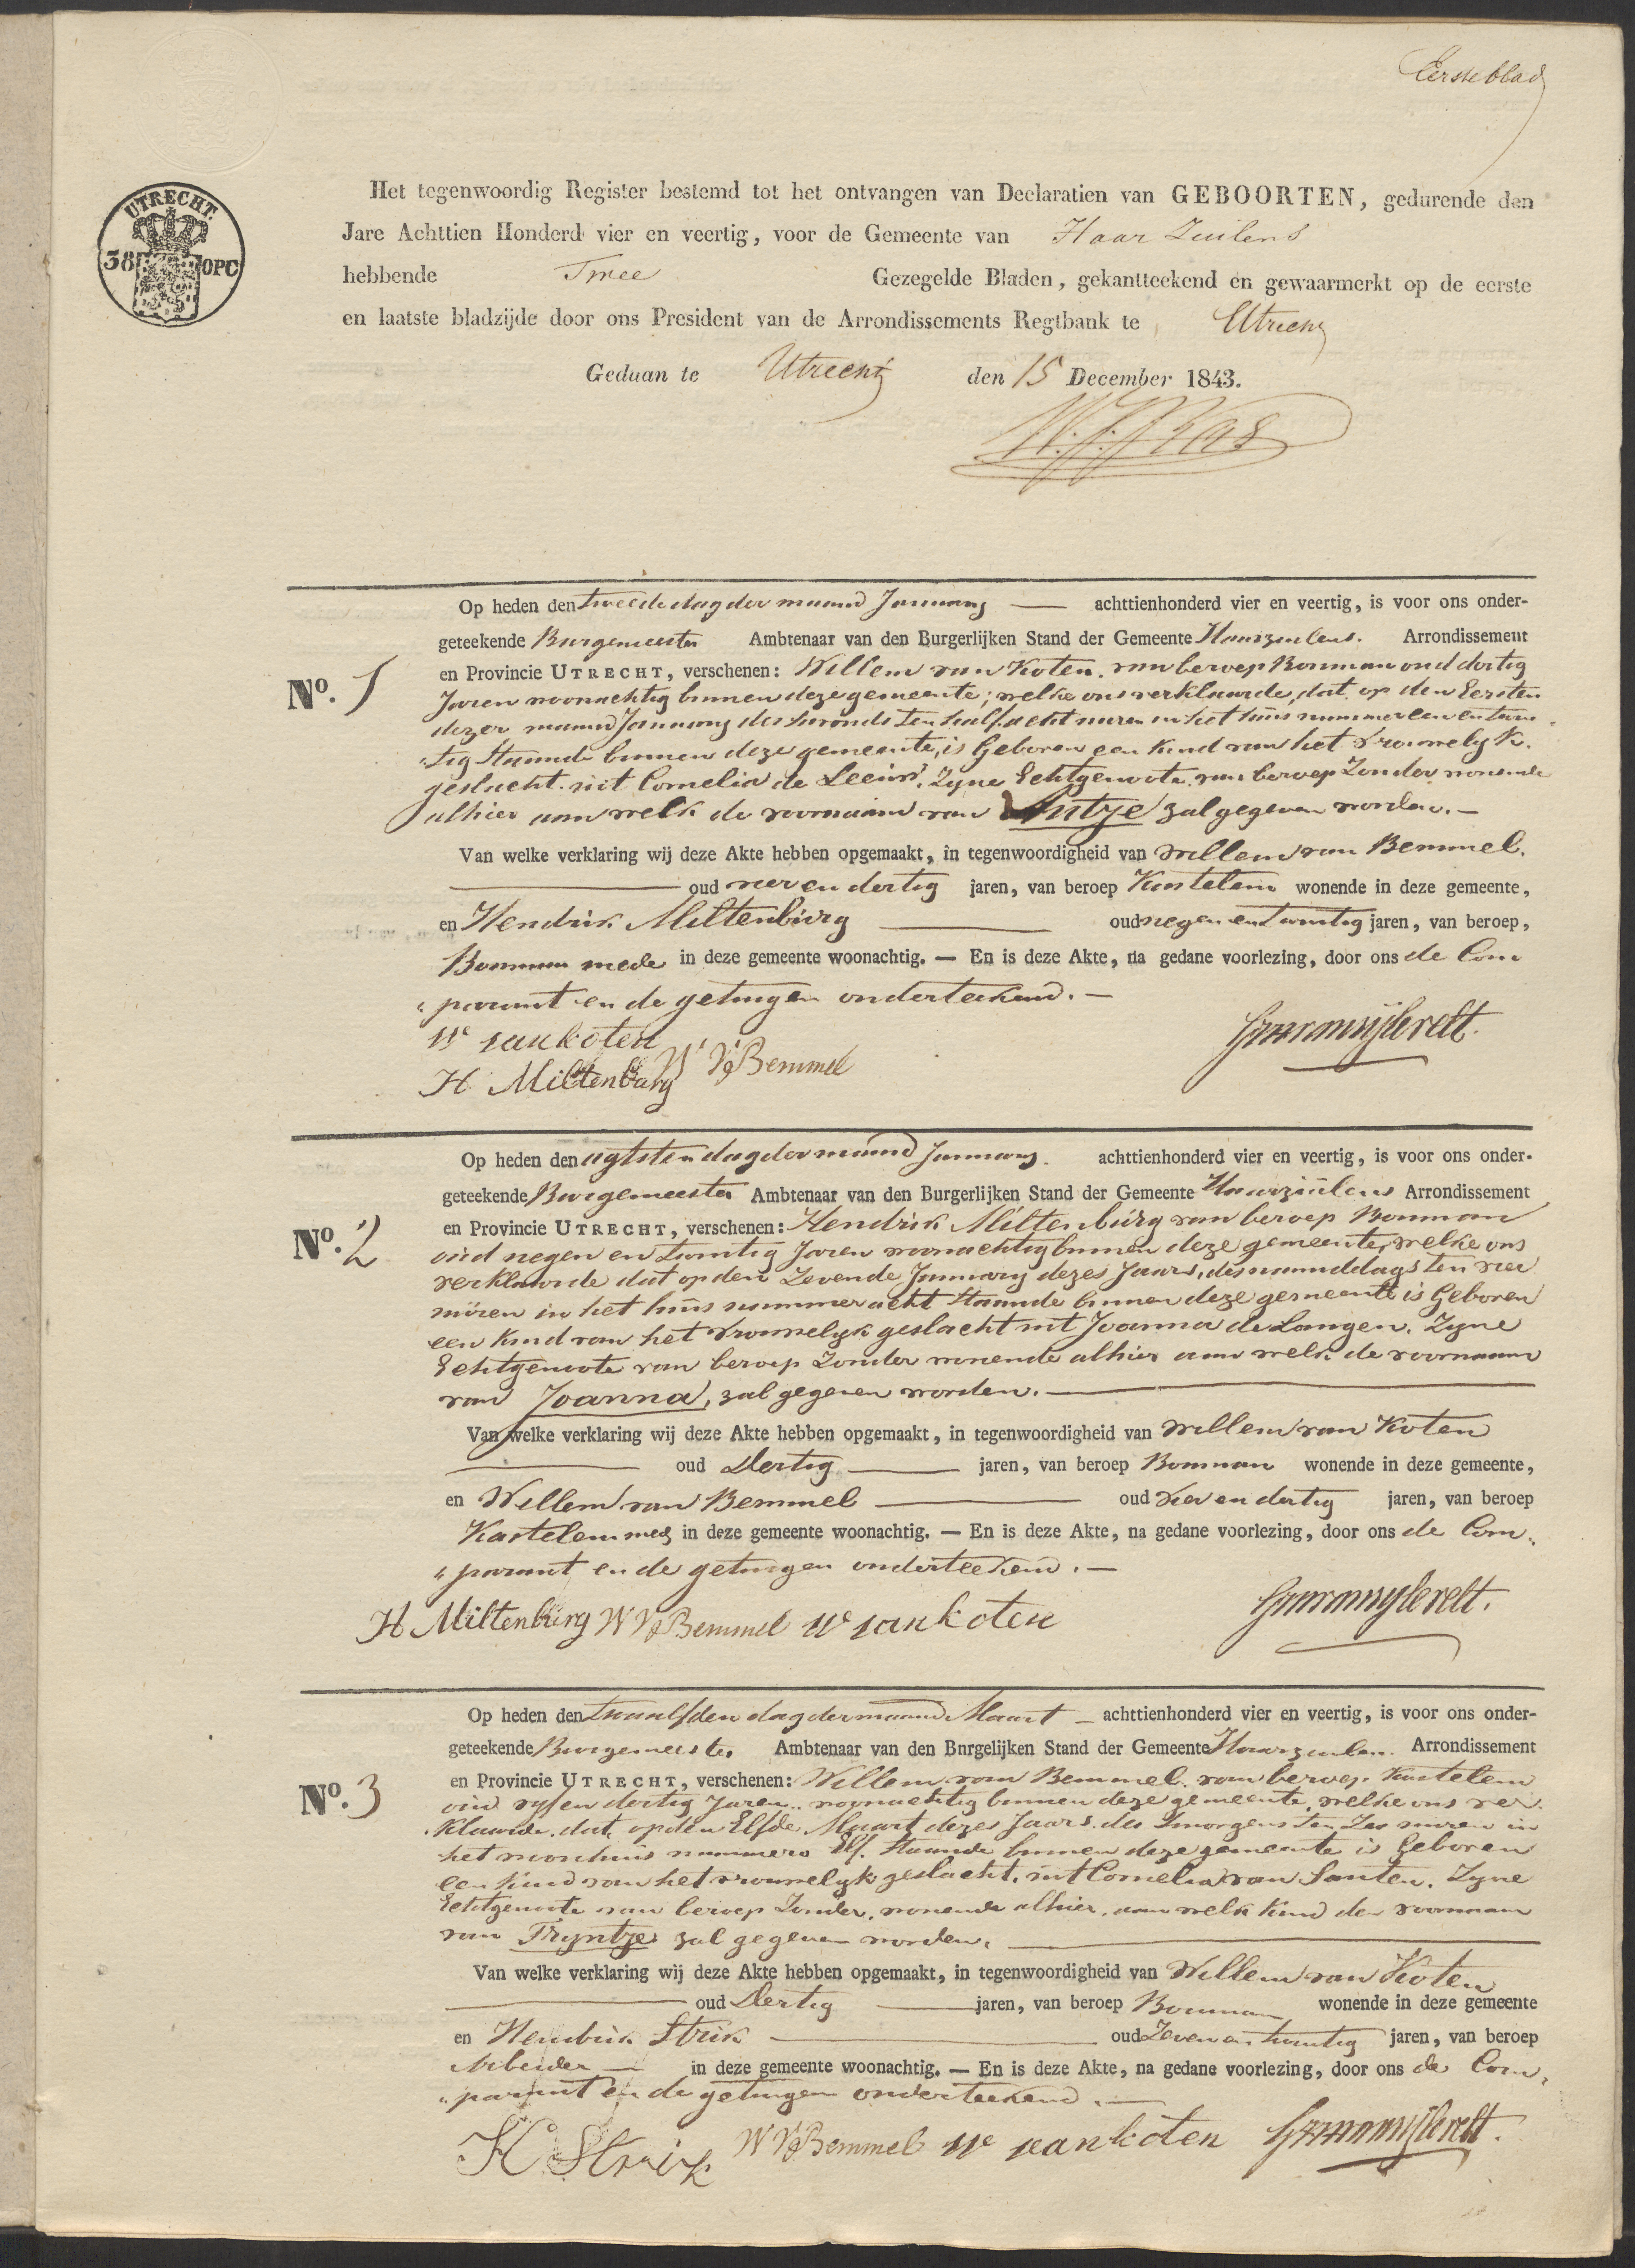 Eersteblad
UTRECHT.
38 OPC
Het tegenwoordig Register bestemd tot het ontvangen van Declaratien van GEBOORTEN, gedurende den
Jare Achttien Honderd vier en veertig, voor de Gemeente van Haar Zuilens
hebbende Twee Gezegelde Bladen, gekantteekend en gewaarmerkt op de eerste
en laatste bladzijde door ons President van de Arrondissements Regtbank te Utrecht
Gedaan te Utrecht den 15 December 1843.
Op heden den tweede dag der maand January — achttienhonderd vier en veertig, is voor ons onder-
geteekende Burgemeester Ambtenaar van den Burgerlijken Stand der Gemeente Haarzuilens. Arrondissement
No. 1
en Provincie UTRECHT, verschenen: Willem van Koten. van beroep Bouman oud dertig
Jaren woonachtig binnen deze gemeente; welke ons verklaarde, dat op den Eersten
dezer maand January des avonds ten half acht uuren in het huis nummer een en twin
"tig Staande binnen deze gemeente, is Geboren een Kind van het Vrouwelyk.
geslacht. uit Cornelia de Leeuw. Zyne Echtgenoote. van beroep Zonder wonende
alhier aan welk de voornaam van Antje zal gegeven worden. —
Van welke verklaring wij deze Akte hebben opgemaakt, in tegenwoordigheid van Willem van Bemmel.
— oud vier en dertig jaren, van beroep Kastelein wonende in deze gemeente,
en Hendrik Miltenburg — oud negen en twintig jaren, van beroep,
Bouman mede in deze gemeente woonachtig. — En is deze Akte, na gedane voorlezing, door ons de Com
"parant en de getuigen onderteekend. —
W vankoten
H Miltenburg W V Bemmel
Op heden den agtsten dag der maand January. achttienhonderd vier en veertig, is voor ons onder-
geteekende Burgemeester Ambtenaar van den Burgerlijken Stand der Gemeente Haarzuilens Arrondissement
No. 2
en Provincie UTRECHT, verschenen: Hendrik Miltenburg van beroep Bouman
oud negen en twintig Jaren woonachtig binnen deze gemeente, welke ons
verklaarde dat op den Zevende January dezes Jaars, des namiddags ten vier
uuren in het huis nummer acht Staande binnen deze gemeente is Geboren
een Kind van het Vrouwelyk geslacht uit Joanna de Langen. Zyne
Echtgenoote van beroep Zonder wonende alhier aan welk de voornaam
van Joanna, zal gegeven worden. —
Van welke verklaring wij deze Akte hebben opgemaakt, in tegenwoordigheid van Willem van Koten
— oud Dertig — jaren, van beroep Bouman wonende in deze gemeente,
en Willem van Bemmel — oud vier en dertig jaren, van beroep
Kastelein mede in deze gemeente woonachtig. — En is deze Akte, na gedane voorlezing, door ons de Com„
"parant en de getuigen onderteekend. —
H Miltenburg W V Bemmel W vankoten
Op heden den twaalfden dag der maand Maart — achttienhonderd vier en veertig, is voor ons onder-
geteekende Burgemeester Ambtenaar van den Burgelijken Stand der Gemeente Haarzuilen. Arrondissement
No. 3
en Provincie UTRECHT, verschenen: Willem van Bemmel. van beroep. Kastelein
oud vyf en dertig Jaren. woonachtig binnen deze gemeente, welke ons ver
klaarde. dat, op den Elfde Maart dezes Jaars. des smorgens ten Zes uuren in
het woonhuis nummero Elf. Staande binnen deze gemeente is Geboren
een kind van het vrouwelyk geslacht. uit Cornelia van Santen. Zyne
Echtgenoote van beroep Zonder. wonende alhier. aan welk kind de voornaam
van Tryntje zal gegeven worden. —
Van welke verklaring wij deze Akte hebben opgemaakt, in tegenwoordigheid van Willem van Koten
— oud Dertig — jaren, van beroep Bouman wonende in deze gemeente
en Hendrik Strik — oud Zeven en twintig jaren, van beroep
Arbeider — in deze gemeente woonachtig. — En is deze Akte, na gedane voorlezing, door ons de Com„
"parant en de getuigen onderteekend. —
H Strik W V Bemmel W vankoten